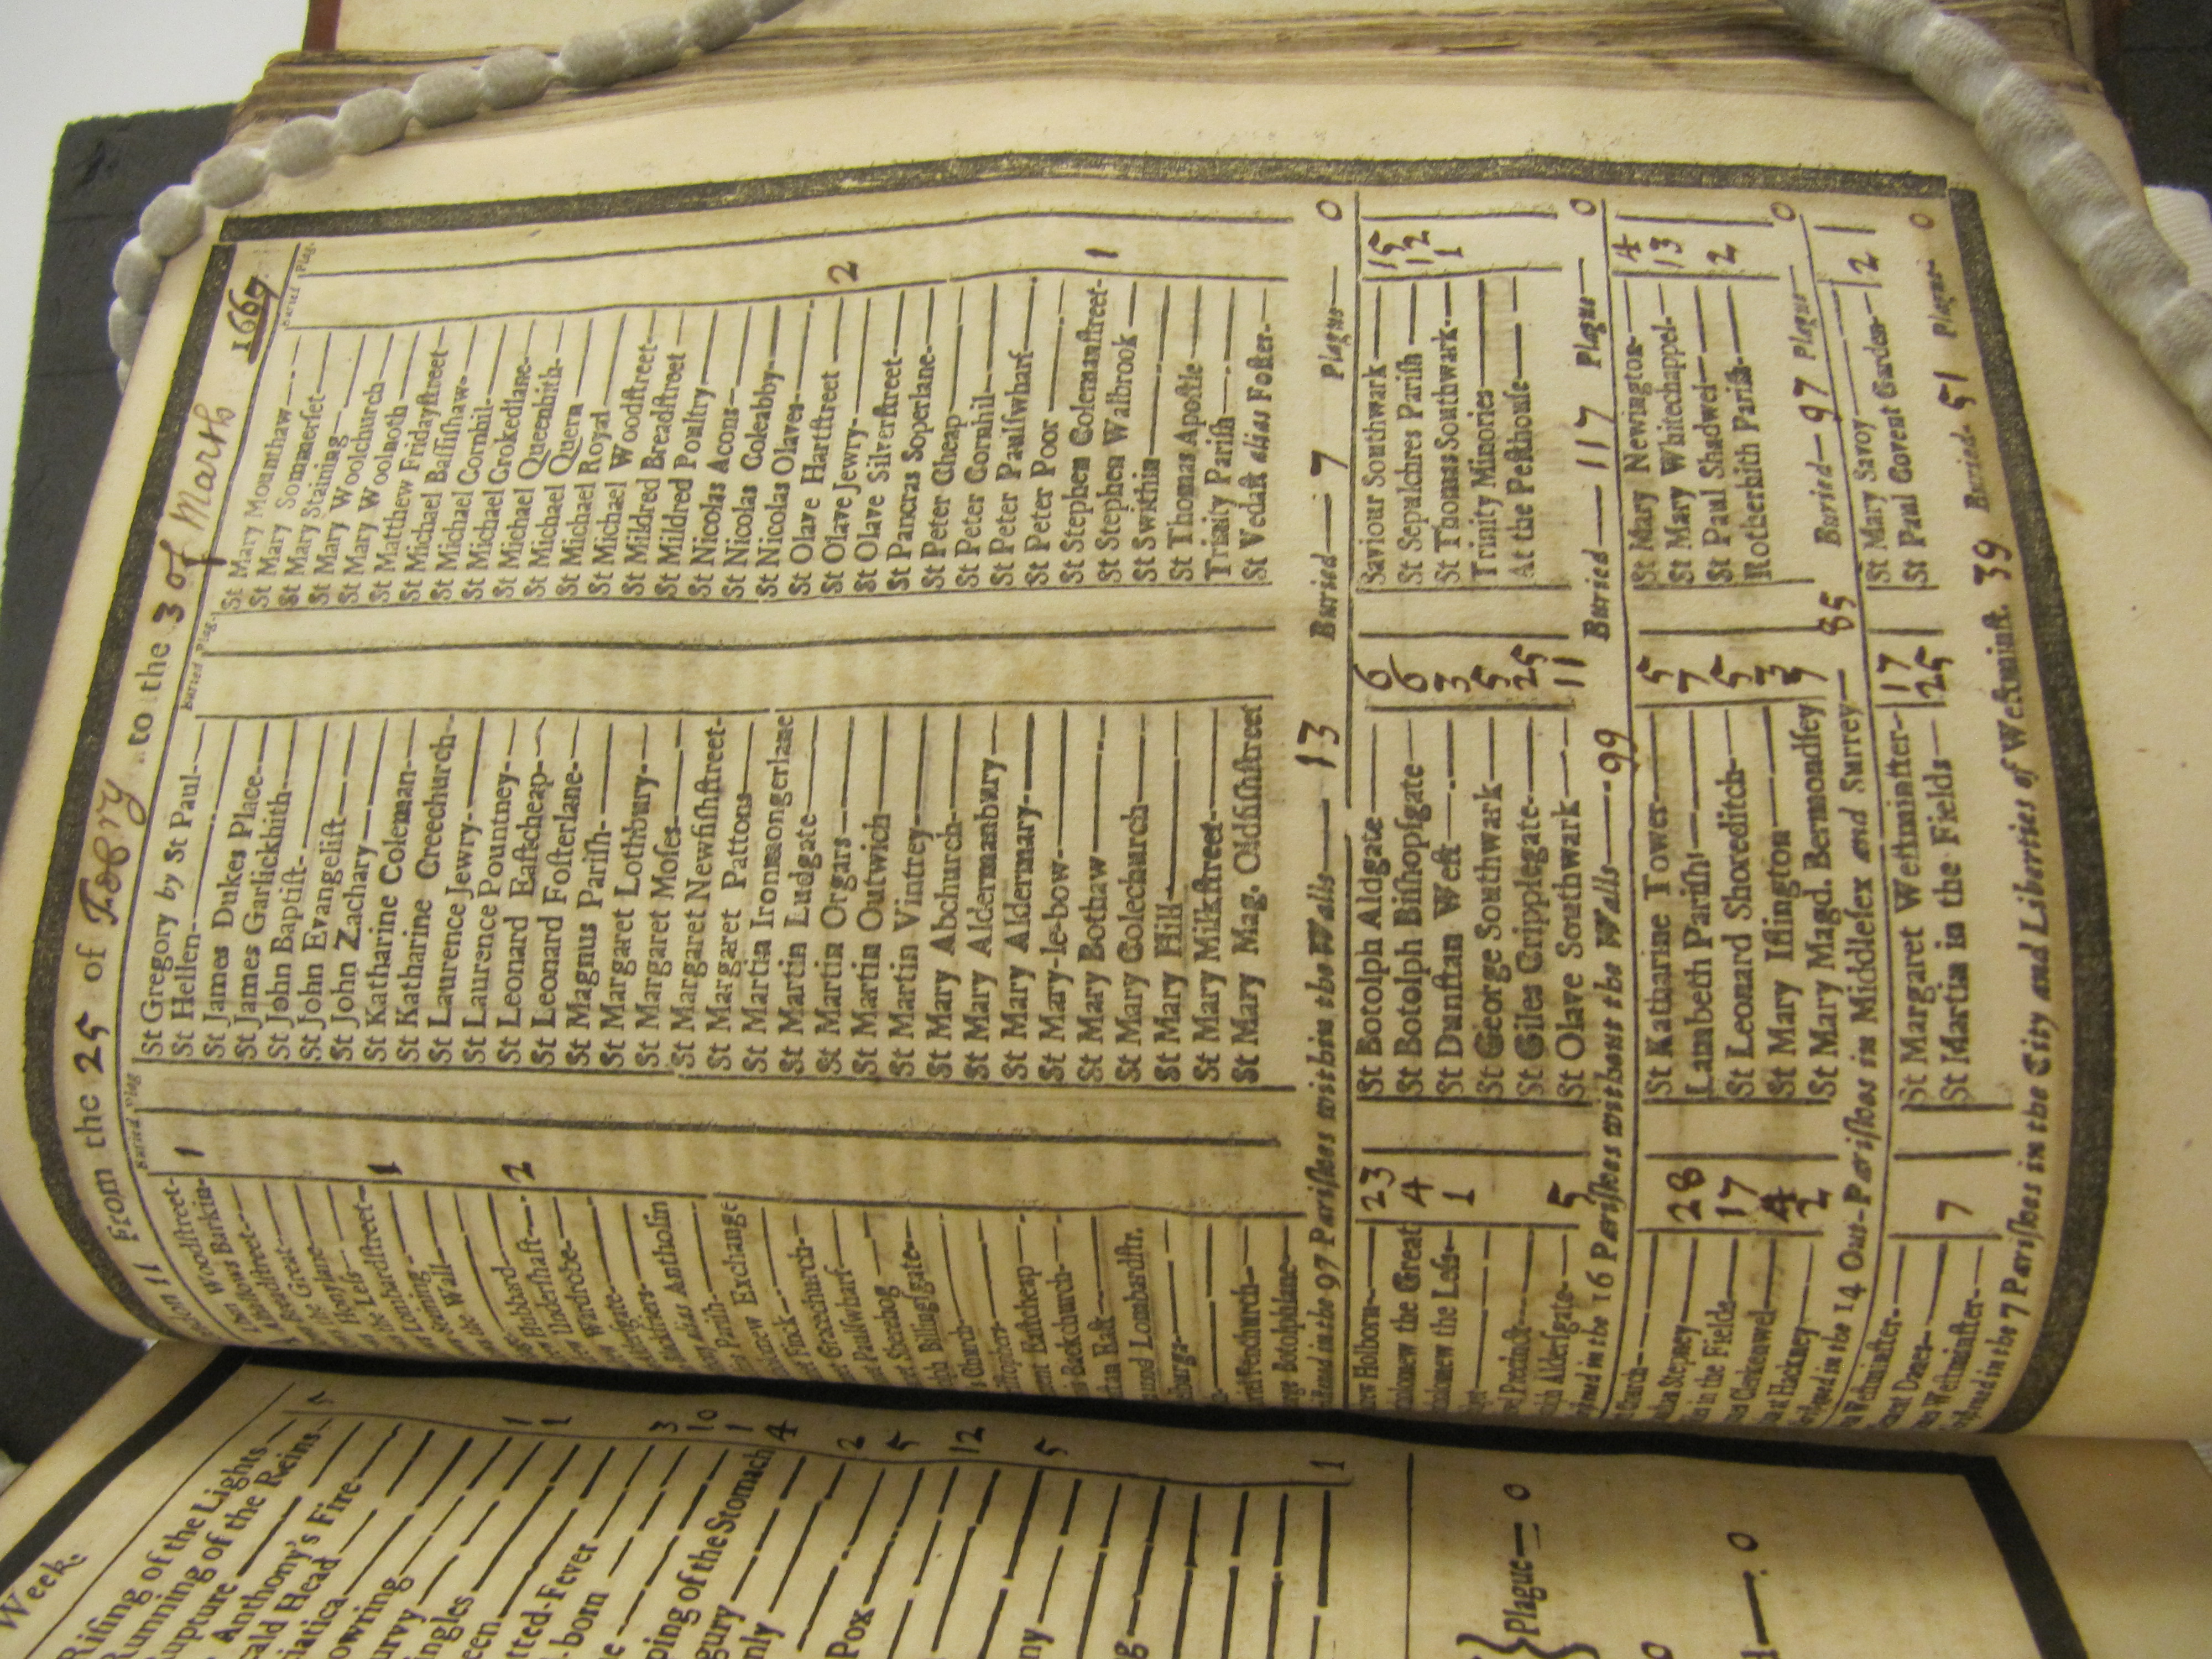 From the 25 of Febry to the 3 of March 1667
Buried Plag.
Woodstreet-
Barkin- 1
Breadstreet
Great
Honylane
Less
Lombardstreet- 1
Staining
the Wall
Hubbard
Undershaft 2
Wardrobe
Aldersgate
Blackfriers
alias Antholin
Parish
Exchange
Finck
Gracechurch
Paulswharf
Sherehog
Billingsgate
Church
Eastcheap
Backchurch
East
Lombardstr.
Fenchurch
Botolphlane
Buried Plag.
St Gregory by St Paul
St Hellen
St James Dukes Place
St James Garlickhith
St John Baptist
St John Evangelist
St John Zachary
St Katharine Coleman
St Katharine Creechurch
St Laurence Jewry
St Laurence Pountney
St Leonard Eastcheap
St Leonard Fosterlane
St Magnus Parish
St Margaret Lothbury
St Margaret Moses
St Margaret Newfishstreet
St Margaret Pattons
St Martin Ironmongerlane
St Martin Ludgate
St Martin Orgars
St Martin Outwich
St Martin Vintrey
St Mary Abchurch
St Mary Aldermanbury
St Mary Aldermary
St Mary-le-bow
St Mary Bothaw
St Mary Colechurch
St Mary Hill
St Mary Milkstreet
St Mary Mag. Oldfishstreet
Buried Plag.
St Mary Mounthaw
St Mary Sommerset
St Mary Staining
St Mary Woolchurch
St Mary Woolnoth
St Matthew Fridaystreet
St Michael Bassishaw
St Michael Cornhil
St Michael Crokedlane
St Michael Queenhith
St Michael Quern
St Michael Royal
St Michael Woodstreet
St Mildred Breadstreet
St Mildred Poultry
St Nicolas Acons
St Nicolas Coleabby
St Nicolas Olaves
St Olave Hartstreet 2
St Olave Jewry
St Olave Silverstreet
St Pancras Soperlane
St Peter Cheap
St Peter Cornhil
St Peter Paulswharf
St Peter Poor
St Stephen Colemanstreet 1
St Stephen Walbrook
St Swithin
St Thomas Apostle
Trinity Parish
St Vedast alias Foster
in the 97 Parishes within the Walls 13 Buried 7 Plague 0
Holborn 23
the Great 4
the Less 1
Precinct
Aldersgate 5
St Botolph Aldgate 6
St Botolph Bishopsgate 6
St Dunstan West 3
St George Southwark 5
St Giles Cripplegate 25
St Olave Southwark 11
Saviour Southwark 15
St Sepulchres Parish 12
St Thomas Southwark 1
Trinity Minories
At the Pesthouse
in the 16 Parishes without the Walls 99 Buried 117 Plague 0
Church
Stepney 28
in the Fields 17
Clerkenwel 4
at Hackney 2
St Katharine Tower 5
Lambeth Parish 7
St Leonard Shoreditch 5
St Mary Islington 3
St Mary Magd. Bermondsey 7
St Mary Newington 4
St Mary Whitechappel 13
St Paul Shadwel 2
Rotherhith Parish
in the 14 Out-Parishes in Middlesex and Surrey 85 Buried 97 Plague 0
Westminster
Danes 7
Westminster
St Margaret Westminster 17
St Martin in the Fields 25
St Mary Savoy 2
St Paul Covent Garden
in the 7 Parishes in the City and Liberties of Westminst. 39 Buried 51 Plague 0
Week.
Rising of the Lights 5
Running of the Reins
Rupture
Anthony's Fire
Head
1
1
Fever
born 3
10
1
of the Stomach 4
2
Pox 5
12
5
1
Plague 0
0